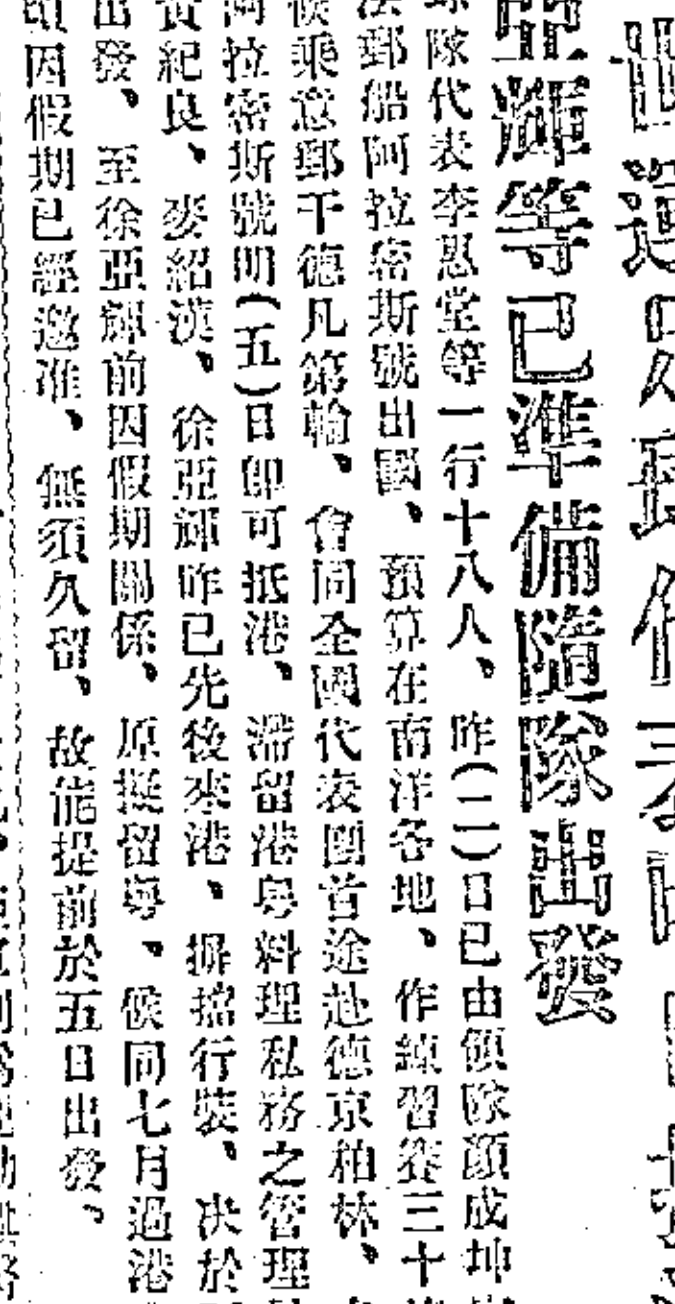 世運足球代
亞輝等已準備隨隊出發
球隊代表李惠堂等一行十八人、昨(二)日已由領隊顏成坤
法郵船阿拉密斯號出國、預算在南洋各地、作練習賽三十
候乘意郵干德凡第輪、會同全國代表團首途赴德京柏林、
阿拉密斯號明(五)日卽可抵港、滯留港粤料理私務之管理
黃紀良、麥紹漢、徐亞輝昨已先後來港、摒擋行裝、决於
出發、至徐亞輝前因假期關係、原擬留粤、俟同七月過港
頃因假期已經邀准、無須久留、故能提前於五日出發、